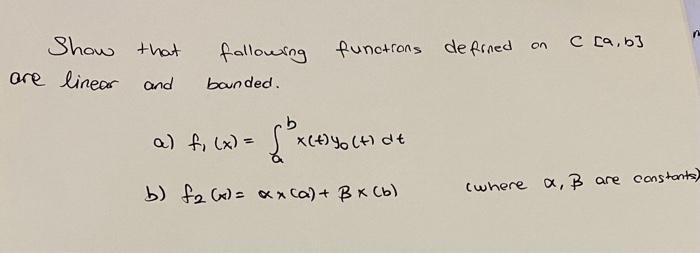 Show that following functions defined on C [a,b]
are linear and bounded.
a) f₁ (x) = ∫ₐᵇ x(t) y₀(t) dt
b) f₂ (x) = α x (a) + β x (b) (where α, β are constants)